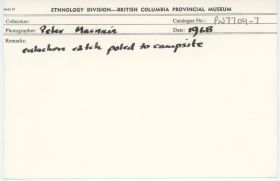 ETHNOLOGY DIVISION—BRITISH COLUMBIA PROVINCIAL MUSEUM
Collection: Catalogue No.: PN7704-7
Photographer: Peter Macnair Date: 1968
Remarks:
eulachon catch poled to campsite